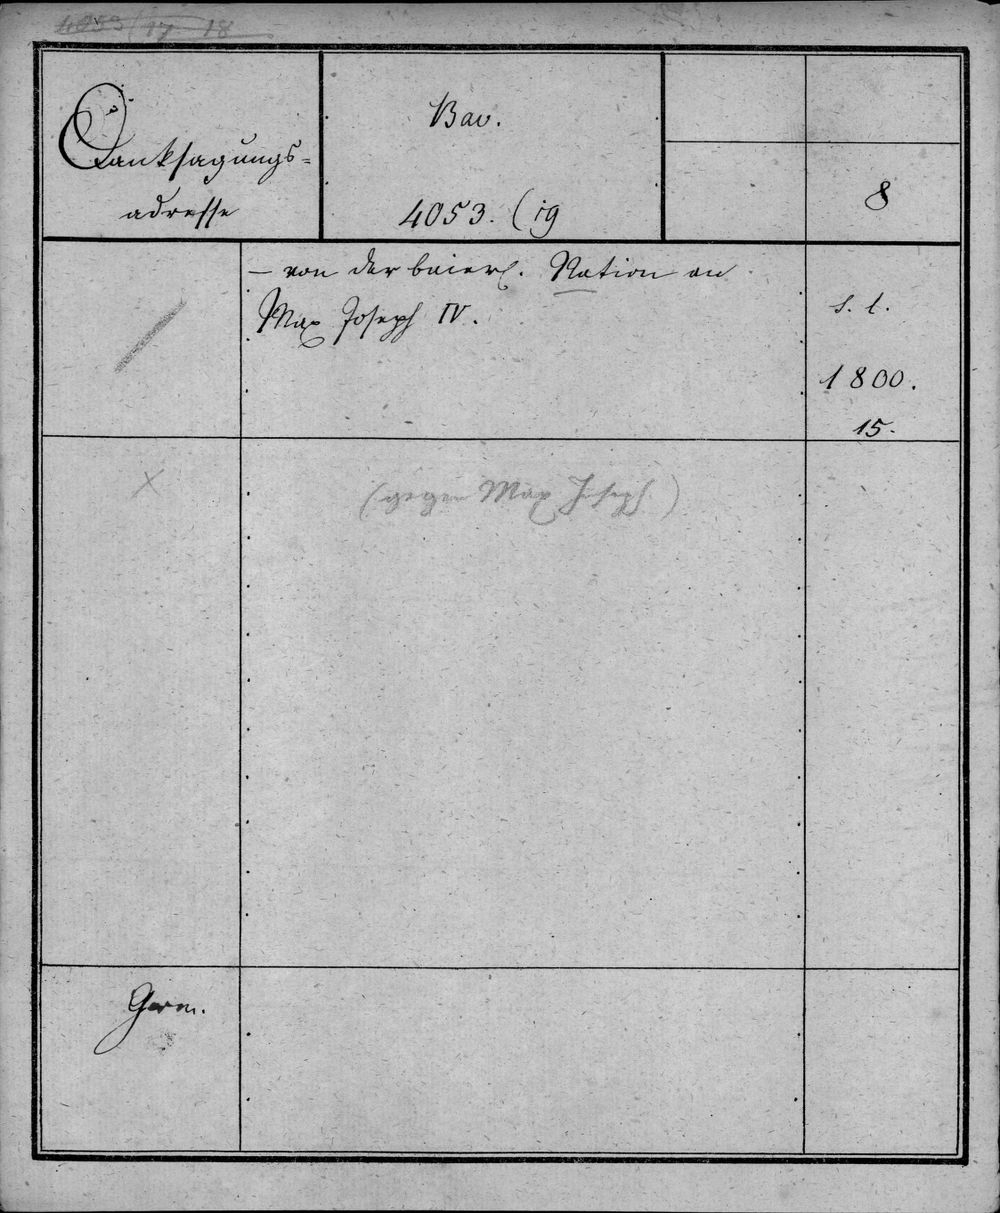 4053 (17 18
Danksagungs-
adresse
Bav.
4053. (19
8
– von der baier. Nation an
Max Joseph IV.
s. l.
1800.
15.
(gegen Max Joseph)
Germ.